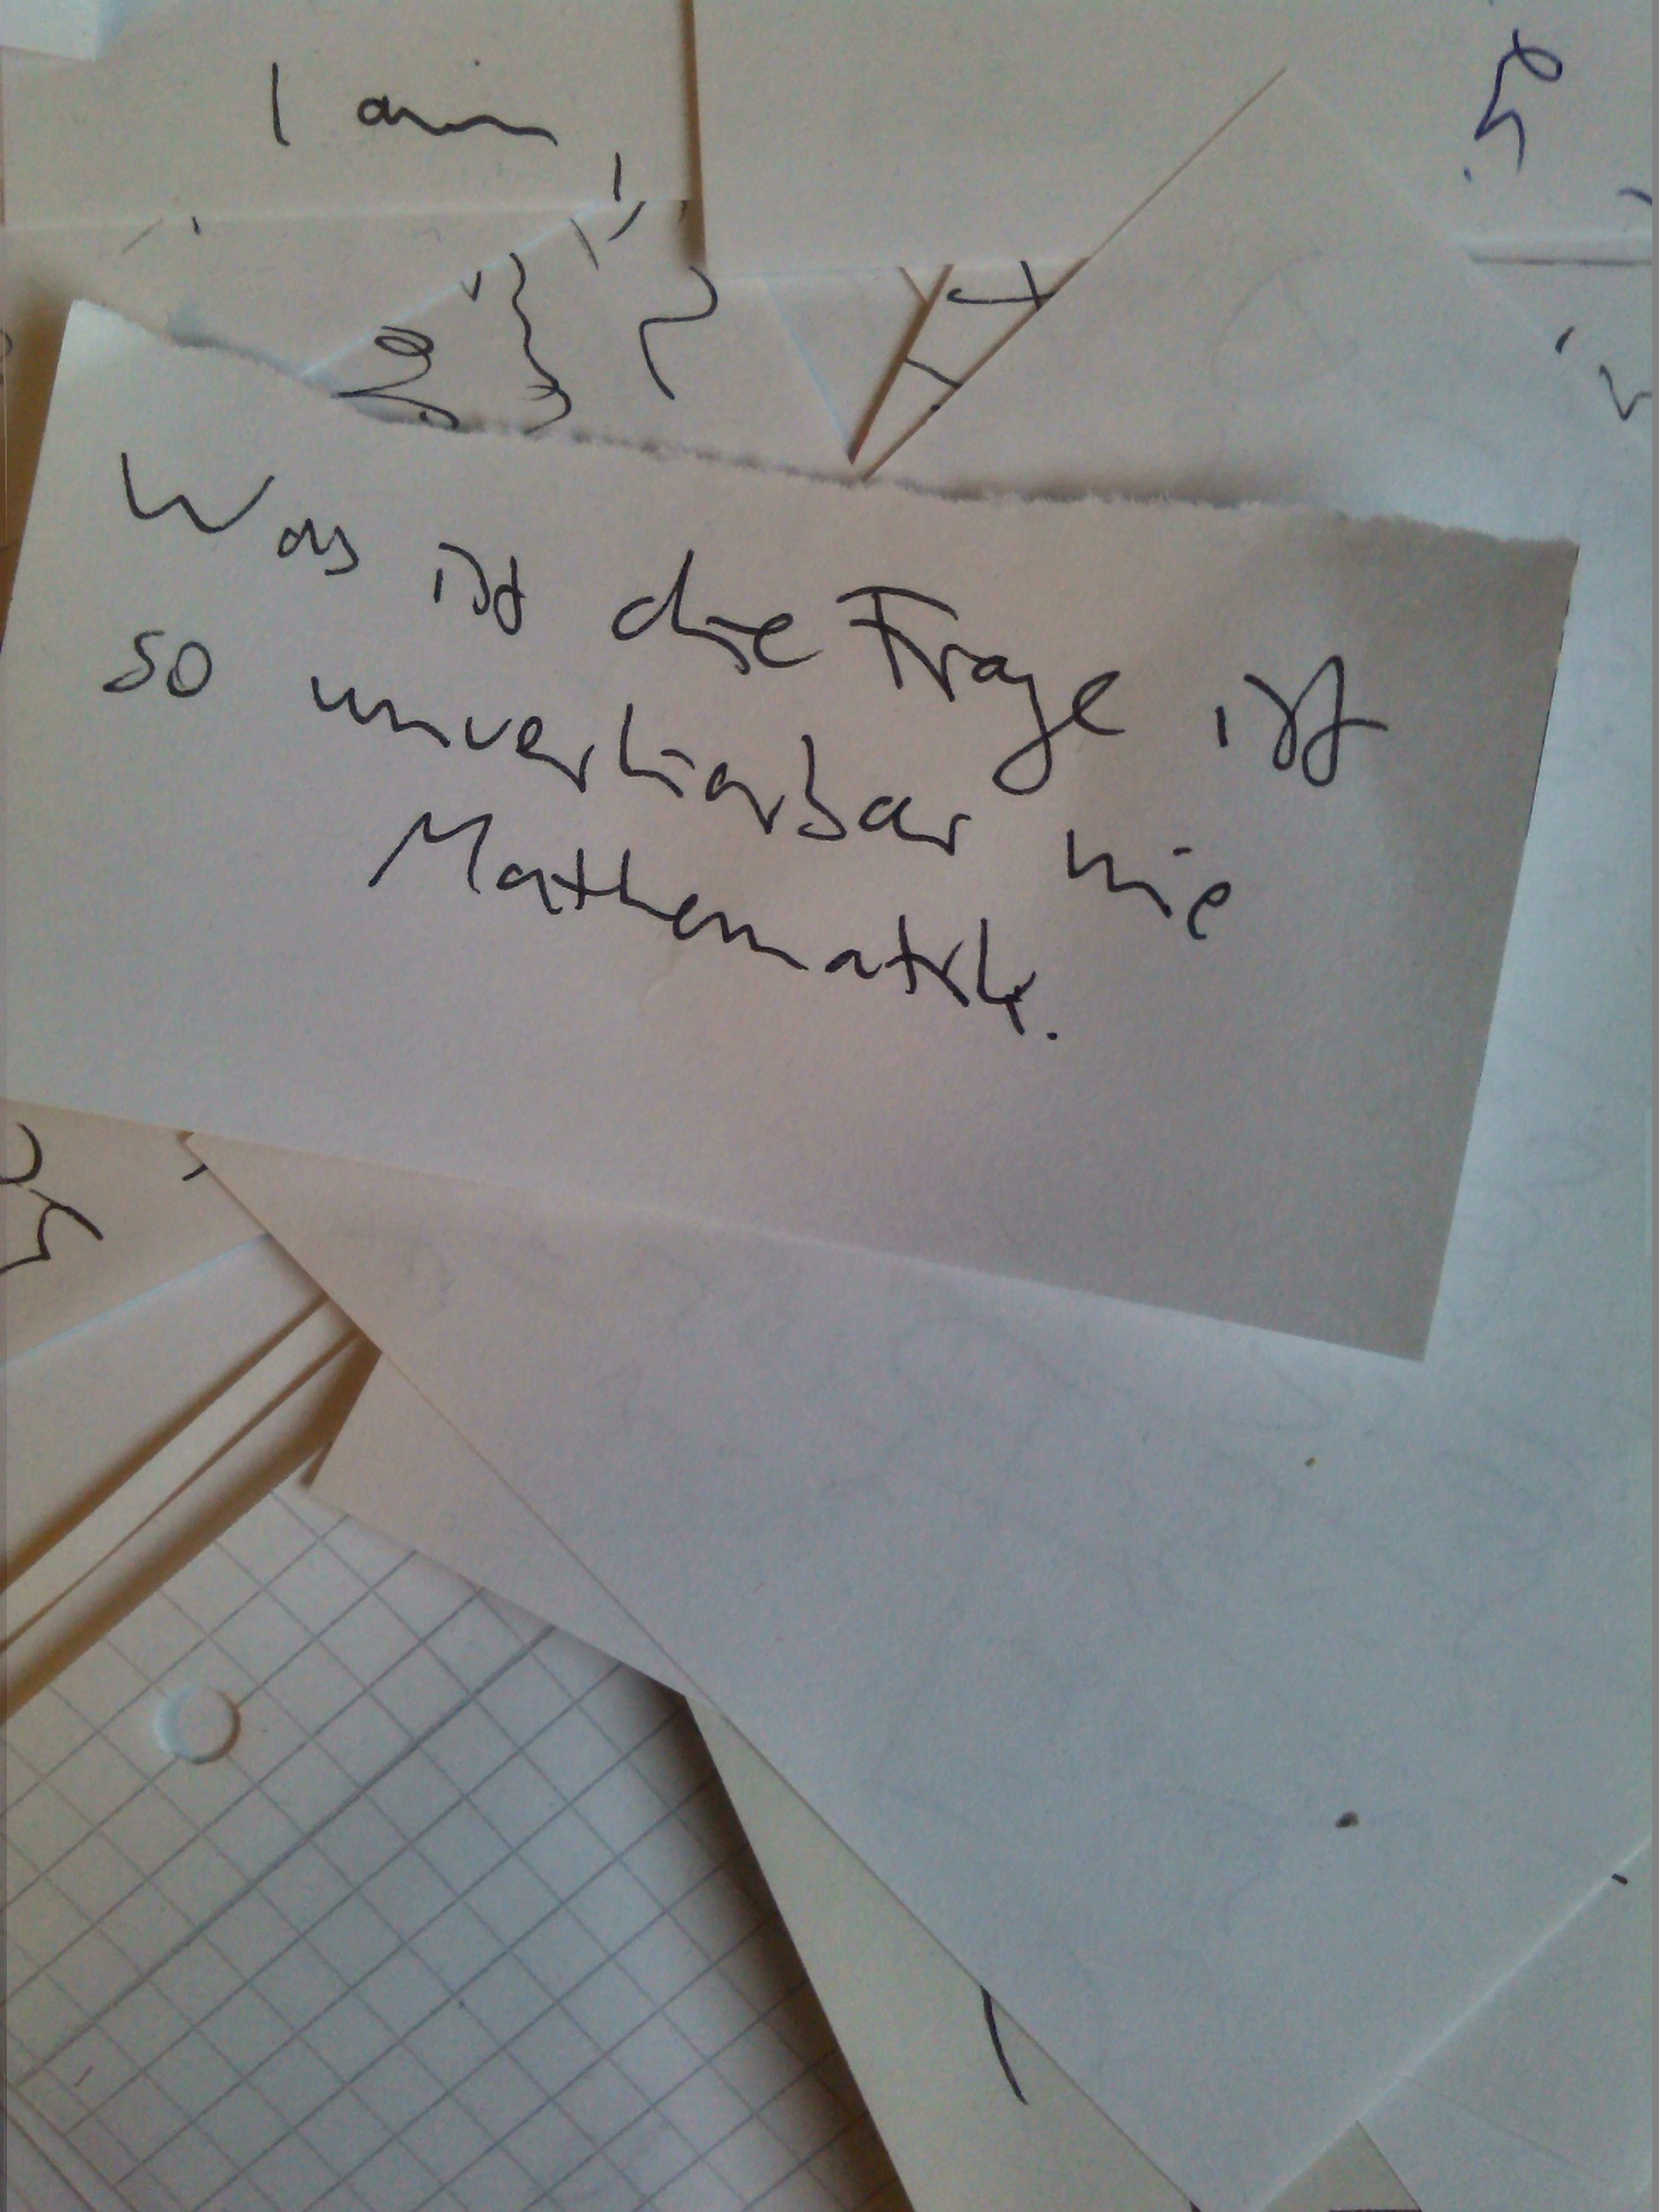 I am
Was ist die Frage ist
so unverliarbar wie
Mathematik.